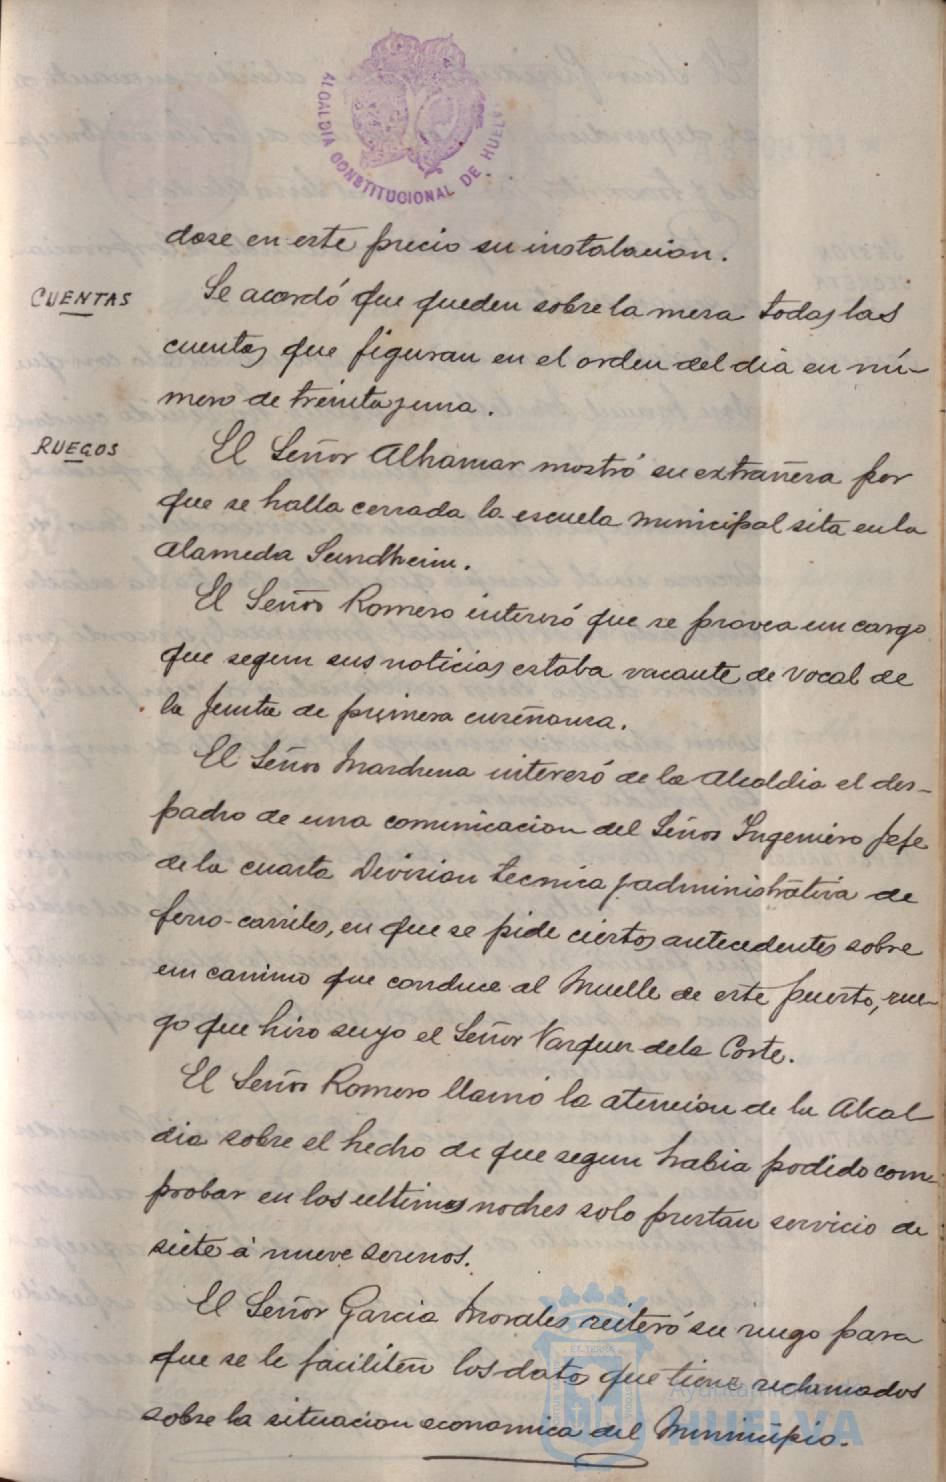 ALCALDIA CONSTITUCIONAL DE HUELVA
dose en este precio su instalacion.
CUENTAS
Se acordó que queden sobre la mesa todas las
cuentas que figuran en el orden del dia en nú-
mero de treinta y una.
RUEGOS
El Señor Alhamar mostró su extrañesa por
que se halla cerrada la escuela municipal sita en la
Alameda Sundheim.
El Señor Romero interesó que se provea un cargo
que segun sus noticias estaba vacante de vocal de
la Junta de primera enseñansa.
El Señor Marchena interesó de la Alcaldia el des-
pacho de una comunicacion del Señor Ingeniero Jefe
de la cuarta Division tecnica y administrativa de
ferro-carriles, en que se pide ciertos antecedentes sobre
un camino que conduce al Muelle de este puerto, rue-
go que hizo suyo el Señor Vazquez de la Corte.
El Señor Romero llamó la atencion de la Alcal
dia sobre el hecho de que segun habia podido com-
probar en las ultimas noches solo prestan servicio de
siete á nueve serenos.
El Señor Garcia Morales reiteró su ruego para
que se le faciliten los datos que tiene reclamados
sobre la situacion economica del Municipio.
Ayuntamiento de
HUELVA